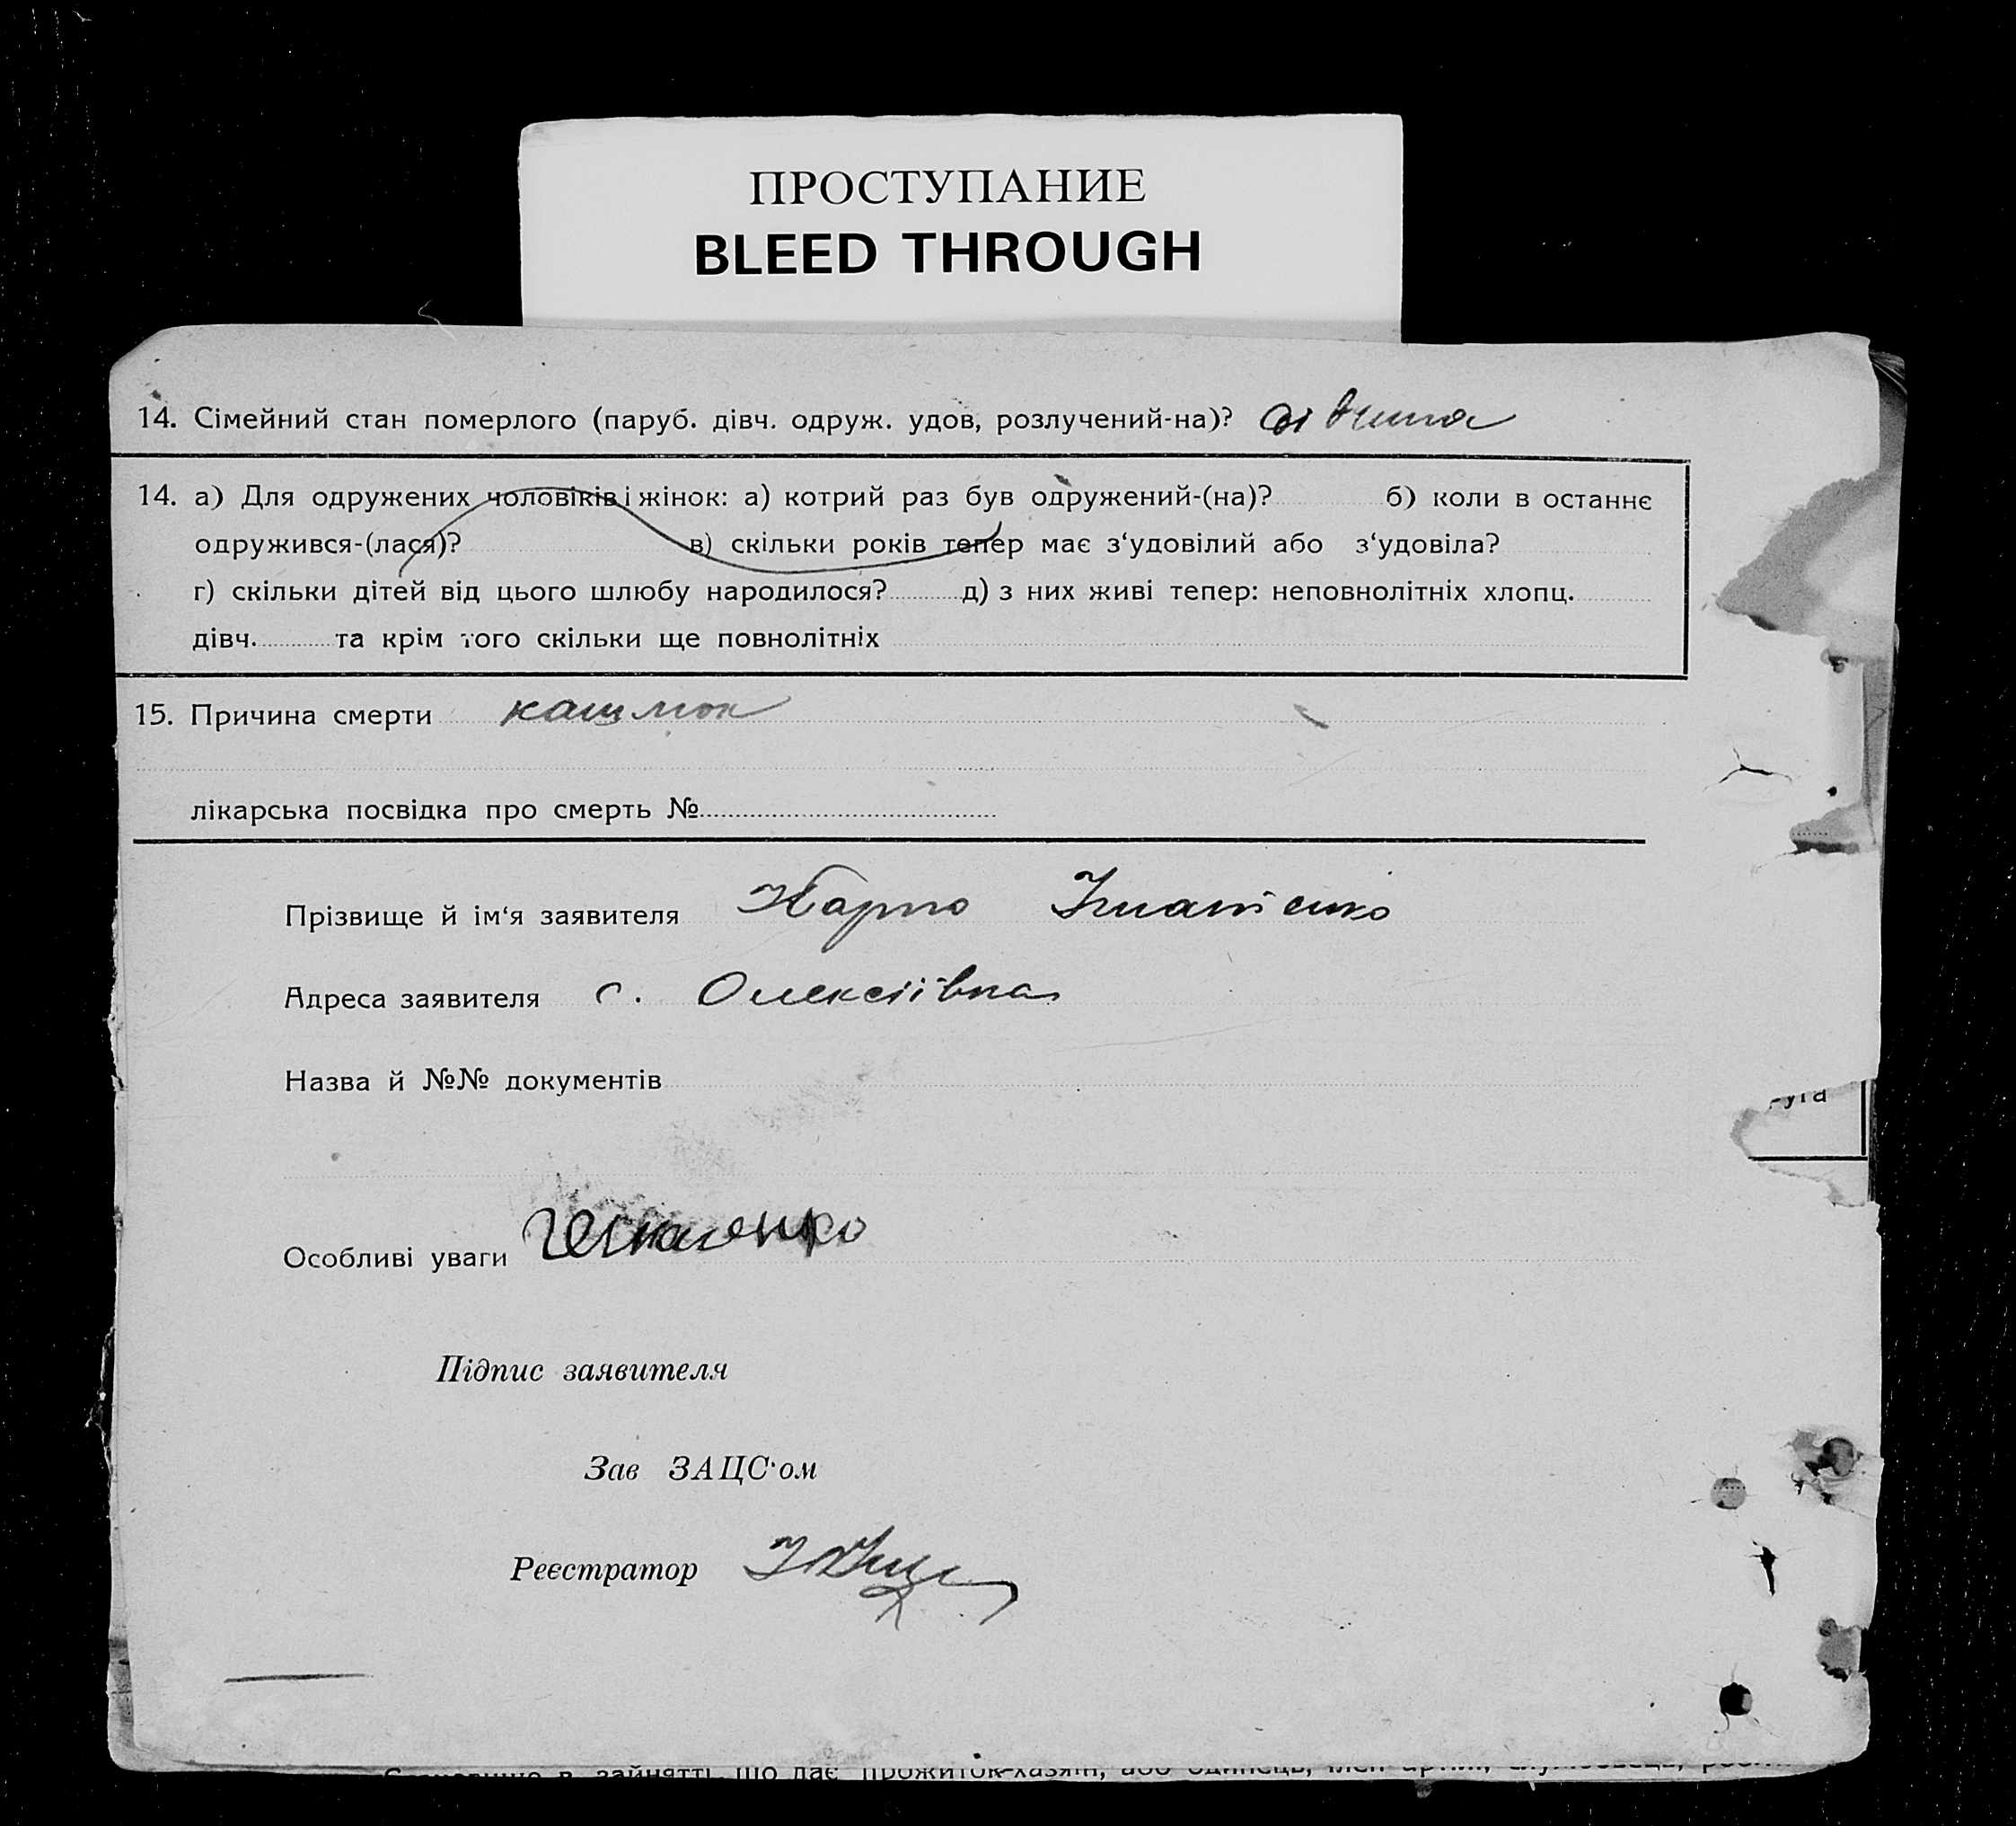 ПРОСТУПАНИЕ
BLEED THROUGH
14. Сімейний стан померлого (паруб. дівч. одруж. удов, розлучений-на)? дівчина
14. а) Для одружених чоловіків і жінок: а) котрий раз був одружений-(на)? б) коли в останнє
одружився-(лася)? в) скільки років тепер має з‘удовілий або з‘удовіла?
г) скільки дітей від цього шлюбу народилося? д) з них живі тепер: неповнолітніх хлопц.
дівч. та крім того скільки ще повнолітніх
15. Причина смерти кашлюк
лікарська посвідка про смерть №
Прізвище й ім‘я заявителя Ігнатенко
Адреса заявителя с. Олексіївка
Назва й №№ документів
уга
Особливі уваги
Підпис заявителя
Зав ЗАЦС‘ом
Реєстратор
в зайнятті, що дає прожиток-хазяїн, або одинець, член артілі, службовець,